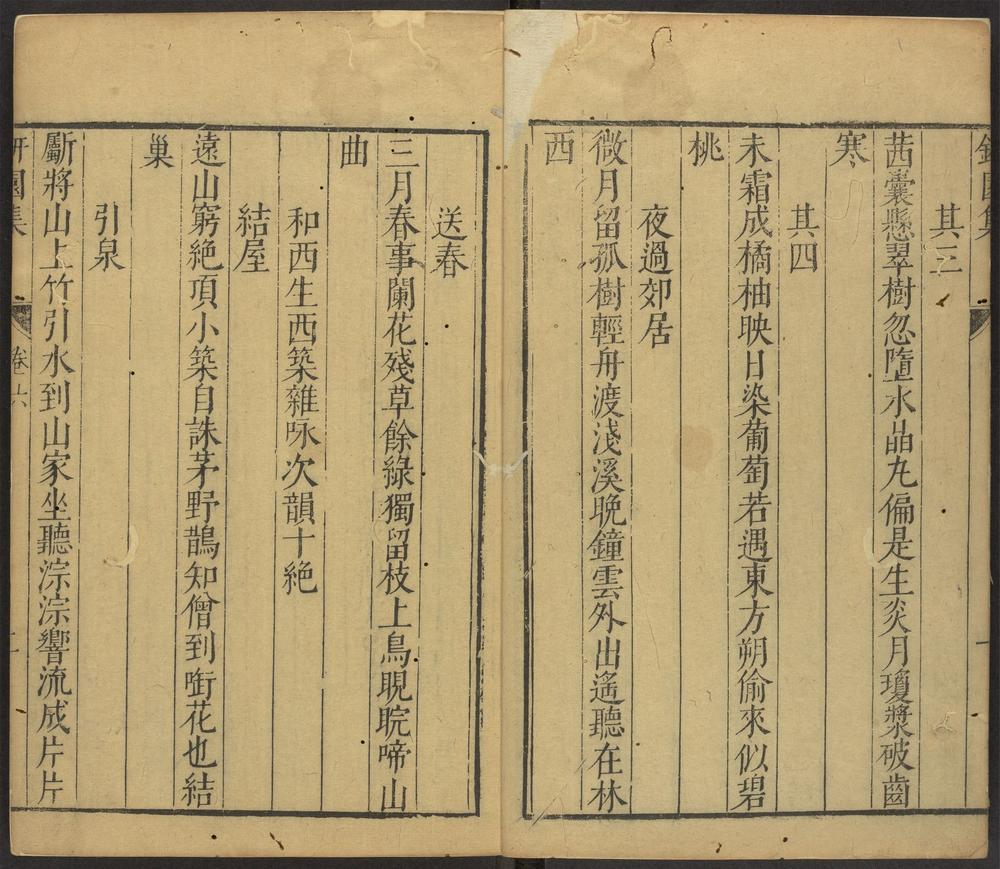 其三
茜囊懸翠樹忽墮水晶丸偏是生炎月瓊漿破齒
寒
其四
未霜成橘柚映日染葡萄若遇東方朔偷來似碧
桃
夜過郊居
微月留孤樹輕舟渡淺溪晚鐘雲外出遙聽在林
西
送春
三月春事闌花殘草餘綠獨留枝上鳥睍睆啼山
曲
和西生西築雜咏次韻十絶
結屋
遠山窮絶項小築自誅茅野鵲知僧到啣花也結
巢
引泉
斸將山上竹引水到山家坐聽淙淙響流成片片
卷六